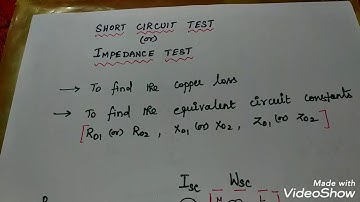 SHORT CIRCUIT TEST
(or)
IMPEDANCE TEST
→ To find the copper loss
→ To find the equivalent circuit constants
[R01 (or) R02 , X01 (or) X02 , Z01 (or) Z02]
Isc Wsc
Made with
VideoShow